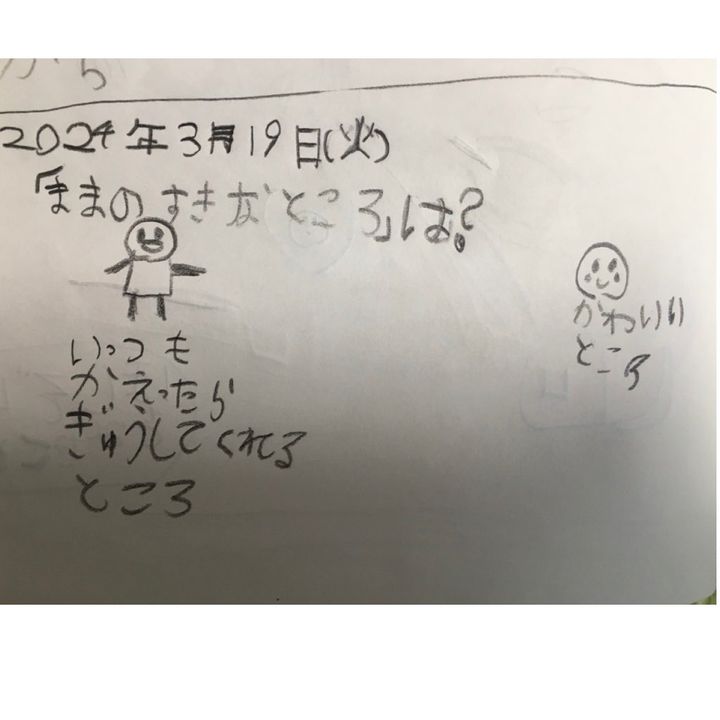 から
2024年3月19日(火)
「ままのすきなところ」は?
いつも
かえったら
ぎゅうしてくれる
ところ
かわいい
ところ